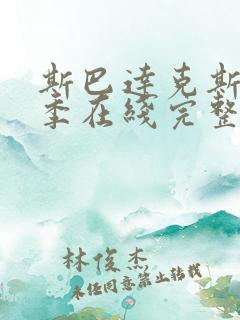 斯巴达克斯
季在线完整
林俊杰
未经同意禁止转载